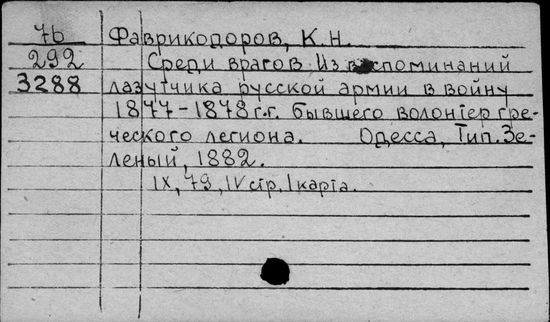 7б Фаврикодоров, К.Н.
292 Среди врагов. Из воспоминаний
3288 лазутчика русской армии в войну
1877-1878 г.г. бывшего волонтер гре-
ческого легиона. Одесса, Тип. Зе-
леный, 1882.
IX, 79, IV стр. 1 карта.